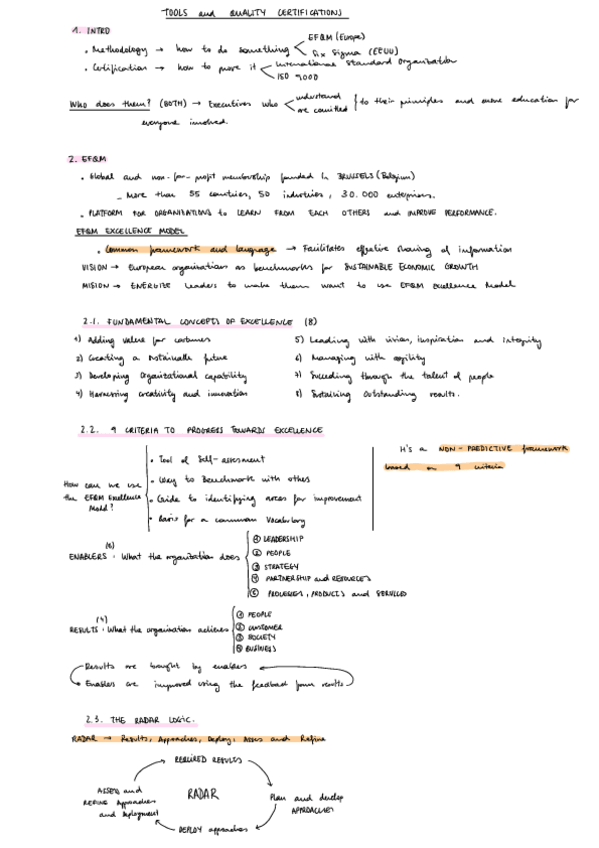 TOOLS and QUALITY CERTIFICATIONS
1. INTRO
• Methodology → how to do something < EFQM (Europe)
Six Sigma (EEUU)
• Certification → how to prove it < International Standard Organisation
ISO 9000
Who does them? (BOTH) → Executives who < understand
are comitted } to their principles and move education for
everyone involved.
2. EFQM
• Global and non-for-profit membership founded in BRUSSELS (Belgium)
– More than 55 countries, 50 industries, 30.000 enterprises.
• PLATFORM FOR ORGANISATIONS to LEARN FROM EACH OTHERS and IMPROVE PERFORMANCE.
EFQM EXCELLENCE MODEL
• Common framework and language → Facilitates effective sharing of information
VISION → European organisations as benchmarks for SUSTAINABLE ECONOMIC GROWTH
MISION → ENERGIZE Leaders to make them want to use EFQM Excellence Model
2.1. FUNDAMENTAL CONCEPTS OF EXCELLENCE (8)
1) Adding value for costumers
2) Creating a sustainable future
3) Developing Organizational capability
4) Harnessing creativity and innovation
5) Leading with vision, inspiration and integrity
6) Managing with agility
7) Succeding through the talent of people
8) Sustaining Outstanding results.
2.2. 9 CRITERIA TO PROGRESS TOWARDS EXCELLENCE
How can we use
the EFQM Excellence
Model?
• Tool of Self-assesment
• Way to Benchmark with others
• Guide to identifying areas for improvement
• Basis for a common Vocabulary
It's a NON-PREDICTIVE framework
based on 9 criteria
(5)
ENABLERS: What the organization does
① LEADERSHIP
② PEOPLE
③ STRATEGY
④ PARTNERSHIP and RESOURCES
⑤ PROCESSES, PRODUCTS and SERVICES
(4)
RESULTS: What the organisation achieves
① PEOPLE
② CUSTOMER
③ SOCIETY
④ BUSINESS
Results are brought by enablers
Enables are improved using the feedback from results
2.3. THE RADAR LOGIC.
RADAR → Results, Approaches, Deploy, Asses and Refine
REQUIRED RESULTS
ASSESS and
REFINE Approaches
and Deployment
RADAR
Plan and develop
APPROACHES
DEPLOY approaches